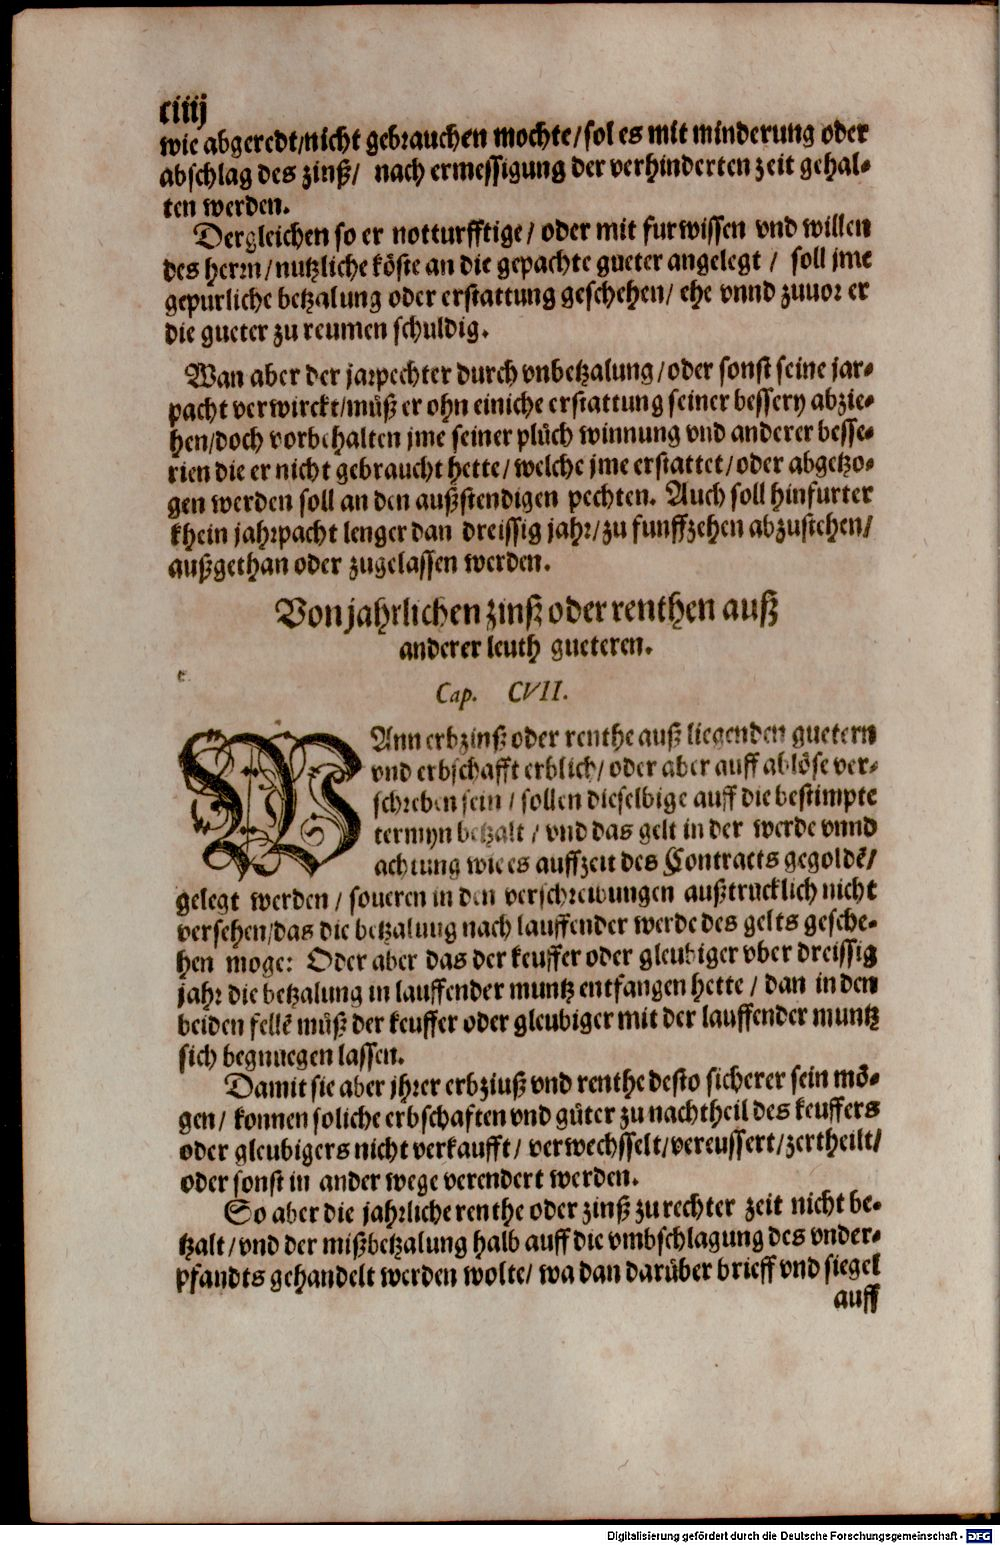 ciiij
wie abgeredt/nicht gebrauchen mochte/sol es mit minderung oder
abschlag des zinß/ nach ermessigung der verhinderten zeit gehal-
ten werden.
Dergleichen so er notturfftige/ oder mit furwissen vnd willen
des herrn/nutzliche köste an die gepachte gueter angelegt / soll jme
gepurliche betzalung oder erstattung geschehen/ ehe vnnd zuuor er
die gueter zu reumen schuldig.
Wan aber der jarpechter durch vnbetzalung/oder sonst seine jar-
pacht verwirckt/müß er ohn einiche erstattung seiner bessery abzie-
hen/doch vorbehalten jme seiner plüch winnung vnd anderer besse-
rien die er nicht gebraucht hette/welche jme erstattet/oder abgetzo-
gen werden soll an den außstendigen pechten. Auch soll hinfurter
khein jahrpacht lenger dan dreissig jahr/zu funffzehen abzustehen/
außgethan oder zugelassen werden.
Von jahrlichen zinß oder renthen auß
anderer leuth gueteren.
Cap. CVII.
WAnn erbzinß oder renthe auß liegenden guetern
vnd erbschafft erblich/ oder aber auff ablöse ver-
schreben sein / sollen dieselbige auff die bestimpte
termyn betzalt / vnd das gelt in der werde vnnd
achtung wie es auffzeit des Contracts gegoldē/
gelegt werden / soueren in den verschreibungen außtrucklich nicht
versehen/das die betzalung nach lauffender werde des gelts gesche-
hen moge: Oder aber das der keuffer oder gleubiger vber dreissig
jahr die betzalung in lauffender muntz entfangen hette / dan in den
beiden fellē müß der keuffer oder gleubiger mit der lauffender muntz
sich begnuegen lassen.
Damit sie aber jhrer erbziuß vnd renthe desto sicherer sein mö-
gen/ konnen soliche erbschaften vnd güter zu nachtheil des keuffers
oder gleubigers nicht verkaufft/ verwechsselt/vereussert/zertheilt/
oder sonst in ander wege verendert werden.
So aber die jahrliche renthe oder zinß zu rechter zeit nicht be-
tzalt/vnd der mißbetzalung halb auff die vmbschlagung des vnder-
pfandts gehandelt werden wolte/ wa dan darüber brieff vnd siegel
auff
Digitalisierung gefördert durch die Deutsche Forschungsgemeinschaft - DFG